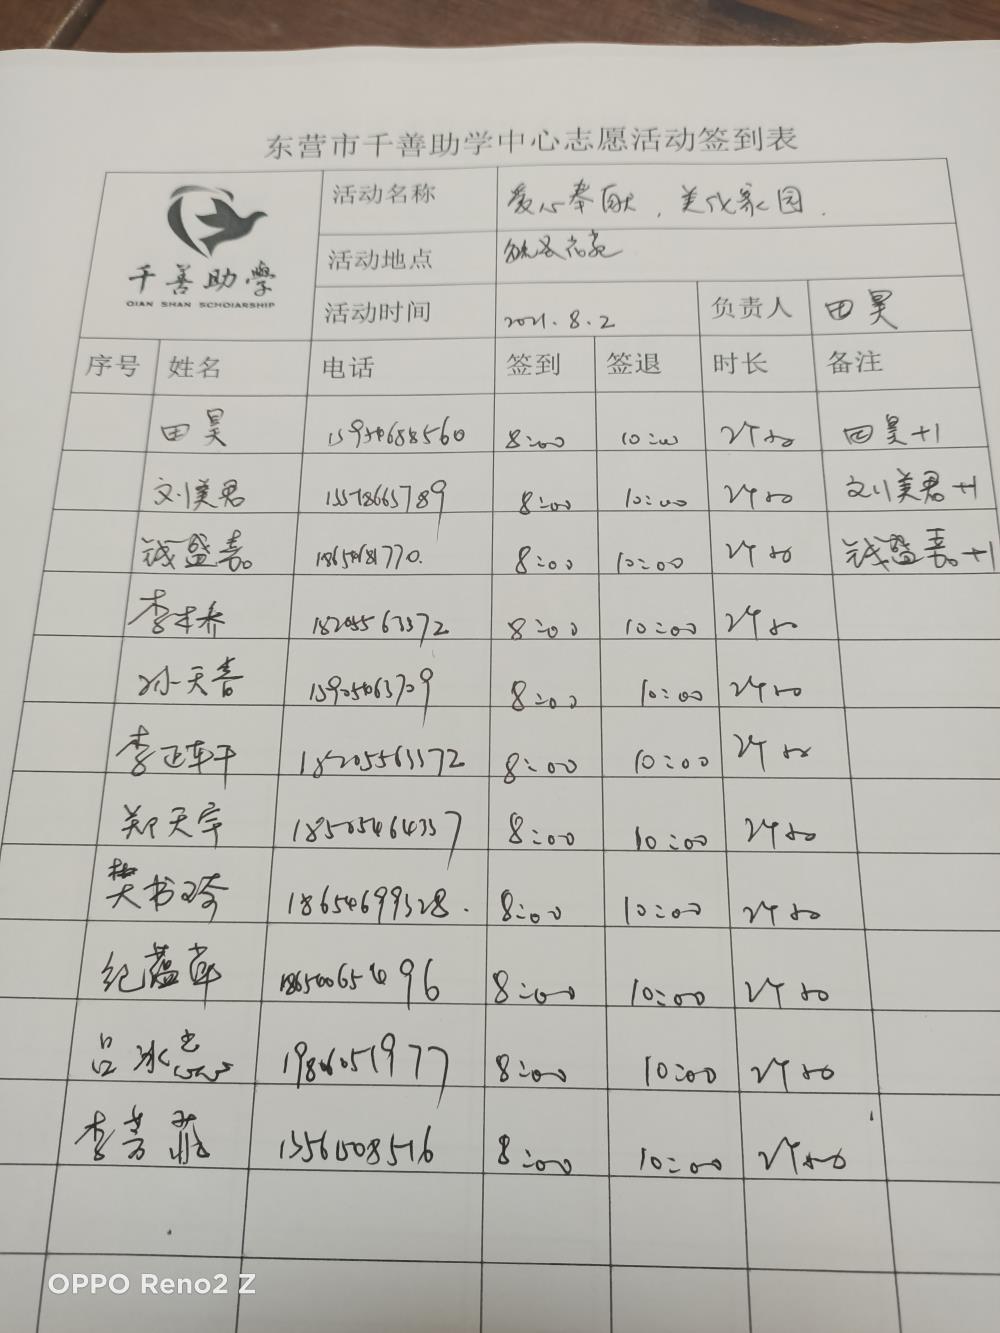 东营市千善助学中心志愿活动签到表
千善助學
QIAN SHAN SCHOLARSHIP
活动名称 爱心奉献，美化家园．
活动地点
活动时间 2021.8.2 负责人 田昊
序号 姓名 电话 签到 签退 时长 备注
田昊 8:00 10:00 2个小时 田昊+1
刘美君 8:00 10:00 2个小时 刘美君+1
钱盛嘉 8:00 10:00 2个小时 钱盛嘉+1
李本乔 18205563372 8:00 10:00 2个小时
孙天喜 15905463709 8:00 10:00 2个小时
李正轩 18205563372 8:00 10:00 2个小时
郑天宇 18505464337 8:00 10:00 2个小时
樊书琦 18654699328. 8:00 10:00 2个小时
纪蕴草 8:00 10:00 2个小时
吕冰志 8:00 10:00 2个小时
李芳菲 8:00 10:00 2个小时
OPPO Reno2 Z